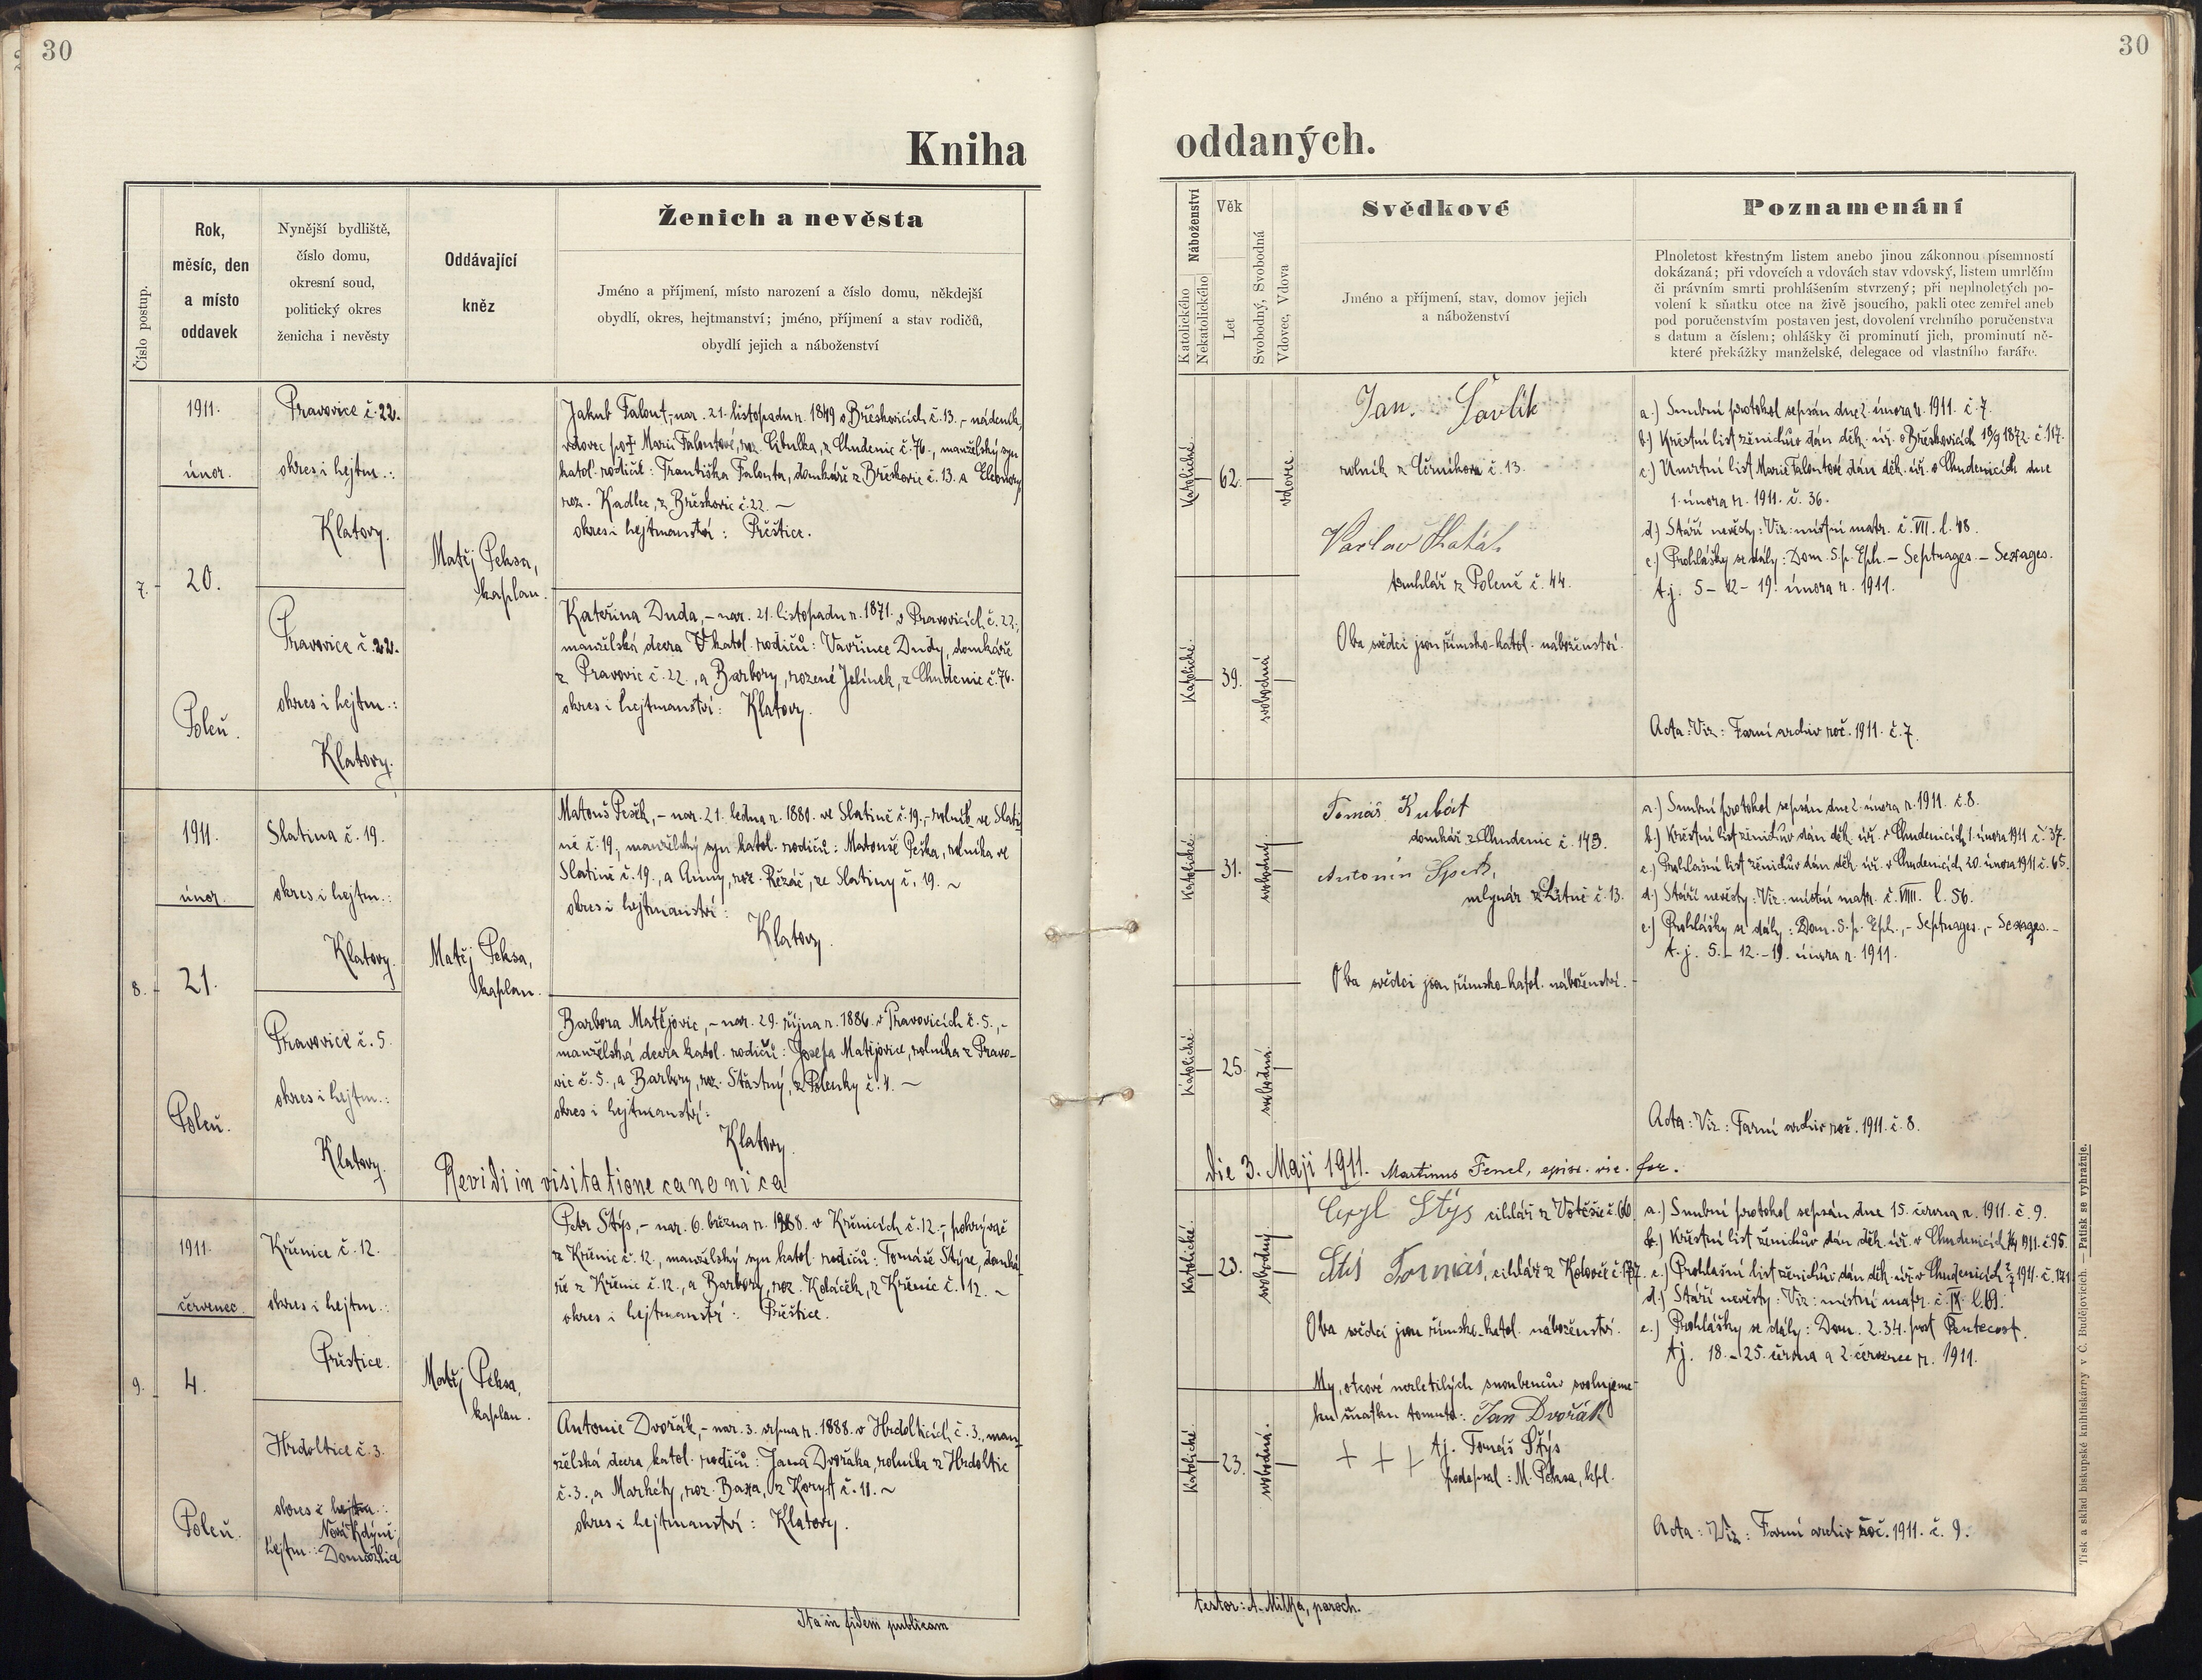 30
30
Kniha
oddaných.
Číslo postup.
Rok,
měsíc, den
a místo
oddavek
Nynější bydliště,
číslo domu,
okresní soud,
politický okres
ženicha i nevěsty
Oddávající
kněz
Ženich a nevěsta
Jméno a příjmení, místo narození a číslo domu, někdejší
obydlí, okres, hejtmanství; jméno, příjmení a stav rodičů,
obydlí jejich a náboženství
Náboženství
Katolického
Nekatolického
Věk
Let
Svobodný, Svobodná
Vdovec, Vdova
Svědkové
Jméno a příjmení, stav, domov jejich
a náboženství
Poznamenání
Plnoletost křestným listem anebo jinou zákonnou písemností
dokázaná; při vdovcích a vdovách stav vdovský, listem umrlčím
či právním smrti prohlášením stvrzený; při neplnoletých po-
volení k sňatku otce na živě jsoucího, pakli otec zemřel aneb
pod poručenstvím postaven jest, dovolení vrchního poručenstva
s datum a číslem; ohlášky či prominutí jich, prominutí ně-
které překážky manželské, delegace od vlastního faráře.
7.
1911.
únor.
20.
Poleň.
Pravovice č. 22.
okres i hejtm.:
Klatovy.
Pravovice č. 22.
okres i hejtm.:
Klatovy.
Matěj Peksa,
kaplan.
Jakub Falout, nar. 21. listopadu r. 1849 v Břeskovicích č. 13. – nádeník,
vdovec po † Marii Faloutové, roz. Cibulka, z Chudenic č. 76., manželský syn
katol. rodičů: Františka Falouta, domkáře z Břeskovic č. 13. a Eleonory
roz. Kadlec, z Břeskovic č. 22. ~
okres i hejtmanství: Přeštice.
Kateřina Duda, – nar. 21. listopadu r. 1871. v Pravovicích č. 22.,
manželská dcera katol. rodičů: Vavřince Dudy, domkáře
z Pravovic č. 22., a Barbory, rozené Jelínek, z Chudenic č. 76.
okres i hejtmanství: Klatovy.
Katolické.
62.
vdovec
Katolické.
39.
svobodná
Jan Šavlík
rolník z Černíkova č. 13.
Václav
truhlář z Poleně č. 44.
Oba svědci jsou římsko-katol. náboženství.
a.) Snubní protokol sepsán dne 2. února r. 1911. č. 7.
b.) Křestní list ženichův dán děk. úř. v Břeskovicích 18/9 1872. č. 117.
c.) Úmrtní list Marie Faloutové dán děk. úř. v Chudenicích dne
1. února r. 1911. č. 36.
d.) Stáří nevěsty: Viz: místní matr. č. VII. l. 48.
e.) Prohlášky se dály: Dom. 5. p. Eph. – Septuages. – Sexages.
t.j. 5 – 12 – 19. února r. 1911.
Acta: Viz: Farní archiv roč. 1911. č. 7.
8.
1911.
únor.
21.
Poleň.
Slatina č. 19.
okres i hejtm.:
Klatovy.
Pravovice č. 5.
okres i hejtm.:
Klatovy.
Matěj Peksa,
kaplan.
Matouš Pešek, – nar. 21. ledna r. 1880. ve Slatině č. 19., – rolník ve Slati-
ně č. 19., manželský syn katol. rodičů: Matouše Peška, rolníka ve
Slatině č. 19., a Anny, roz. Řezáč, ze Slatiny č. 19. ~
okres i hejtmanství:
Klatovy.
Barbora Matějovic, – nar. 29. října r. 1886. v Pravovicích č. 5., –
manželská dcera katol. rodičů: Josefa Matějovice, rolníka z Pravo-
vic č. 5., a Barbory, roz. Šťastný, z Polenky č. 4. ~
okres i hejtmanství:
Klatovy.
Katolické.
31.
svobodný.
Katolické.
25.
svobodná.
Tomáš Kubát
domkář z Chudenic č. 143.
Antonín
mlynář z Lítně č. 13.
Oba svědci jsou římsko-katol. náboženství.
a.) Snubní protokol sepsán dne 2. února r. 1911. č. 8.
b.) Křestní list ženichův dán děk. úř. v Chudenicích 1. února 1911 č. 37.
c.) Prohlašní list ženichův dán děk. úř. v Chudenicích 20. února 1911 č. 65.
d.) Stáří nevěsty: Viz. místní matr. č. VIII. l. 56.
e.) Prohlášky se dály: Dom. 5. p. Eph., – Septuages., – Sexages. –
t.j. 5. – 12. – 19. února r. 1911.
Acta: Viz: Farní archiv roč. 1911. č. 8.
Revidi in visitatione canonica
die 3. Maji 1911. Martinus Fencl, episc. vic. for.
9.
1911.
červenec.
4.
Poleň.
Křenice č. 12.
okres i hejtm.:
Přeštice.
Hrdoltice č. 3.
okres i hejtm.:
Nová Kdyně;
hejtm.: Domažlice
Matěj Peksa,
kaplan.
Petr Štýs, – nar. 6. března r. 1888. v Křenicích č. 12., – pokrývač
z Křenic č. 12., manželský syn katol. rodičů: Tomáše Štýse, domká-
ře z Křenic č. 12., a Barbory, roz. Koláček, z Křenic č. 12. ~
okres i hejtmanství: Přeštice.
Antonie Dvořák, – nar. 3. srpna r. 1888. v Hrdolticích č. 3., man-
želská dcera katol. rodičů: Jana Dvořáka, rolníka z Hrdoltic
č. 3., a Markéty, roz. Baxa, z Koryt č. 11. ~
okres i hejtmanství: Klatovy.
Katolické.
23.
svobodný
Katolické.
23.
svobodná.
Cyryl Štýs cihlář z
Štýs Tomáš, cihlář z Kolovče
Oba svědci jsou římsko-katol. náboženství.
My, otcové nezletilých snoubenců svolujeme
ku sňatku tomuto: Jan Dvořák
+ + + t.j. Tomáš Štýs
podepsal: M. Peksa, kpl.
a.) Snubní protokol sepsán dne 15. června r. 1911. č. 9.
b.) Křestní list ženichův dán děk. úř. v Chudenicích 1911. č. 95.
c.) Prohlašní list ženichův dán děk. úř. v Chudenicích 2/7 1911. č. 141
d.) Stáří nevěsty: Viz: místní matr. č. IX. l. 69.
e.) Prohlášky se dály: Dom. 2. 3. 4. post Pentecost.
t.j. 18. – 25. června a 2. července r. 1911.
Acta: Viz: Farní archiv roč. 1911. č. 9.
Ita in fidem publicam
testor: A. Milka, paroch.
Tisk a sklad biskupské knihtiskárny v Č. Budějovicích. — Patisk se vyhražuje.